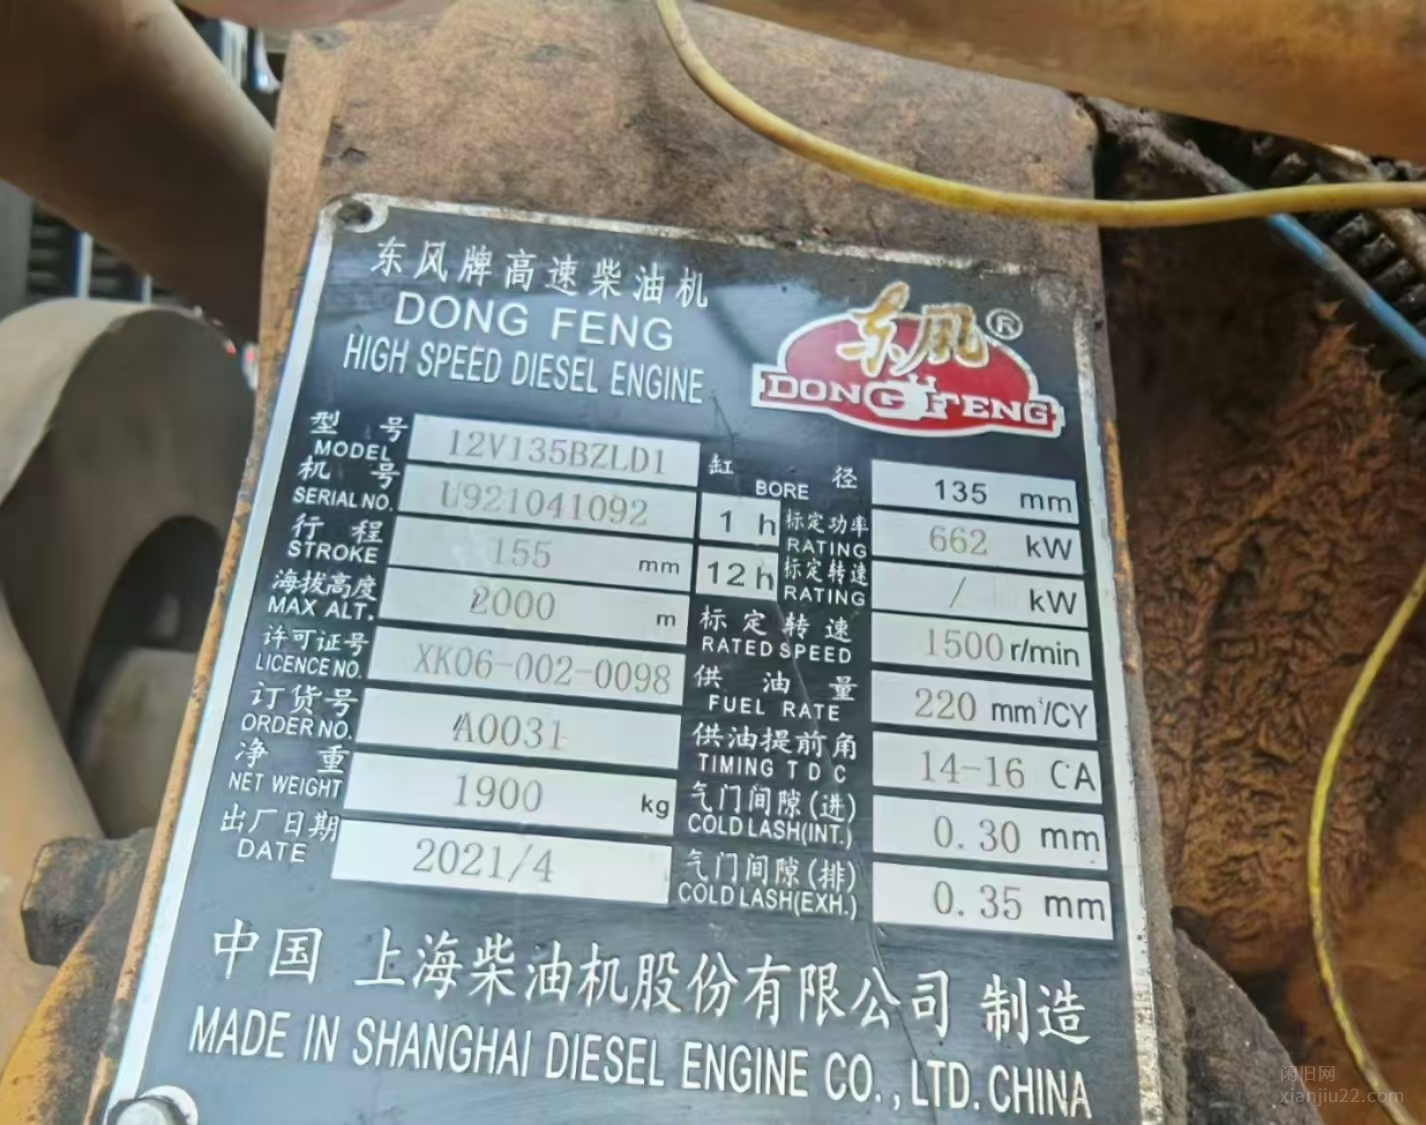 东风牌高速柴油机
DONG FENG
HIGH SPEED DIESEL ENGINE
东风 ®
DONG FENG
型号 MODEL 12V135BZLD1
机号 SERIAL NO. U921041092
行程 STROKE 155 mm
海拔高度 MAX ALT. 2000 m
许可证号 LICENCE NO. XK06-002-0098
订货号 ORDER NO. A0031
净重 NET WEIGHT 1900 kg
出厂日期 DATE 2021/4
缸径 BORE 135 mm
1 h 标定功率 RATING 662 kW
12 h 标定转速 RATING / kW
标定转速 RATED SPEED 1500 r/min
供油量 FUEL RATE 220 mm³/CY
供油提前角 TIMING T D C 14-16 CA
气门间隙(进) COLD LASH(INT.) 0.30 mm
气门间隙(排) COLD LASH(EXH.) 0.35 mm
中国 上海柴油机股份有限公司 制造
MADE IN SHANGHAI DIESEL ENGINE CO., LTD. CHINA
闲旧网
xianjiu22.com